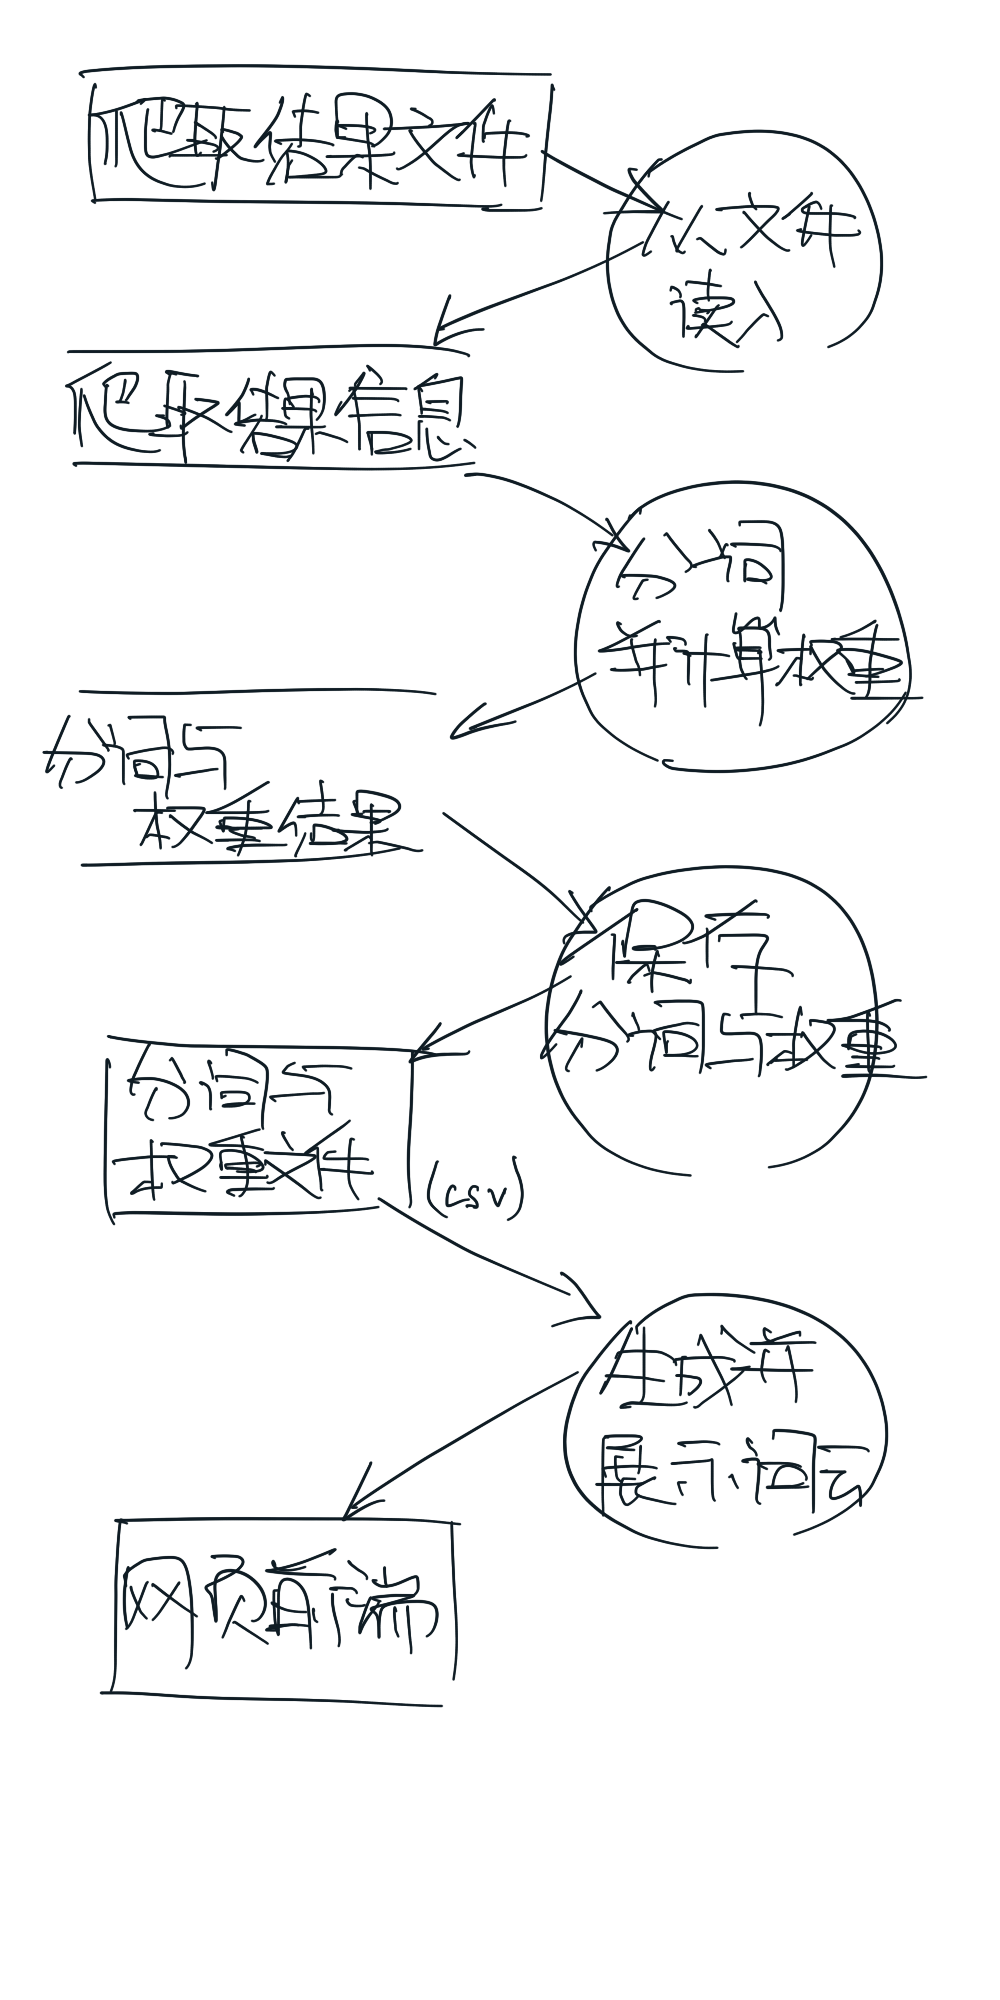 爬取结果文件
从文件
读入
爬取结果信息
分词
并计算权重
分词与
权重结果
保存
分词与权重
分词与
权重文件
(csv)
生成并
展示词云
网页前端